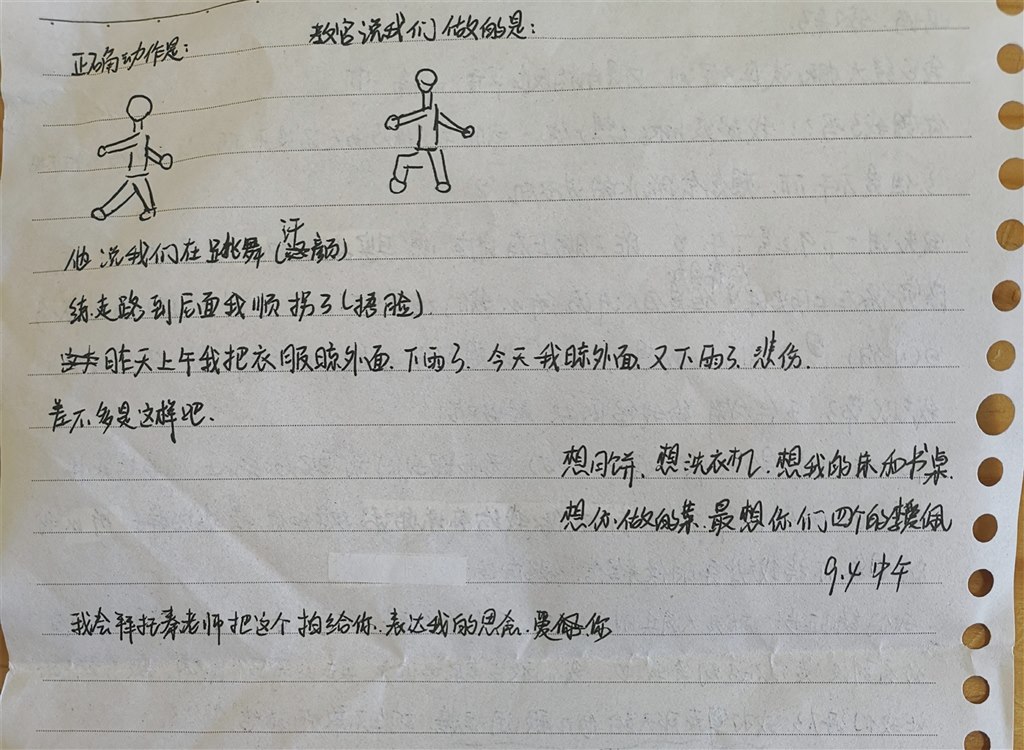 正确动作是：
教官说我们做的是：
他说我们在跳舞（汗颜）
练走路到后面我顺拐了（捂脸）
昨天上午我把衣服晾外面.下雨了.今天我晾外面.又下雨了.悲伤.
差不多是这样吧.
想月饼.想洗衣机.想我的床和书桌.
想你做的菜.最想你们四个的
9.4 中午
我会拜托秦老师把这个拍给你.表达我的思念.爱你